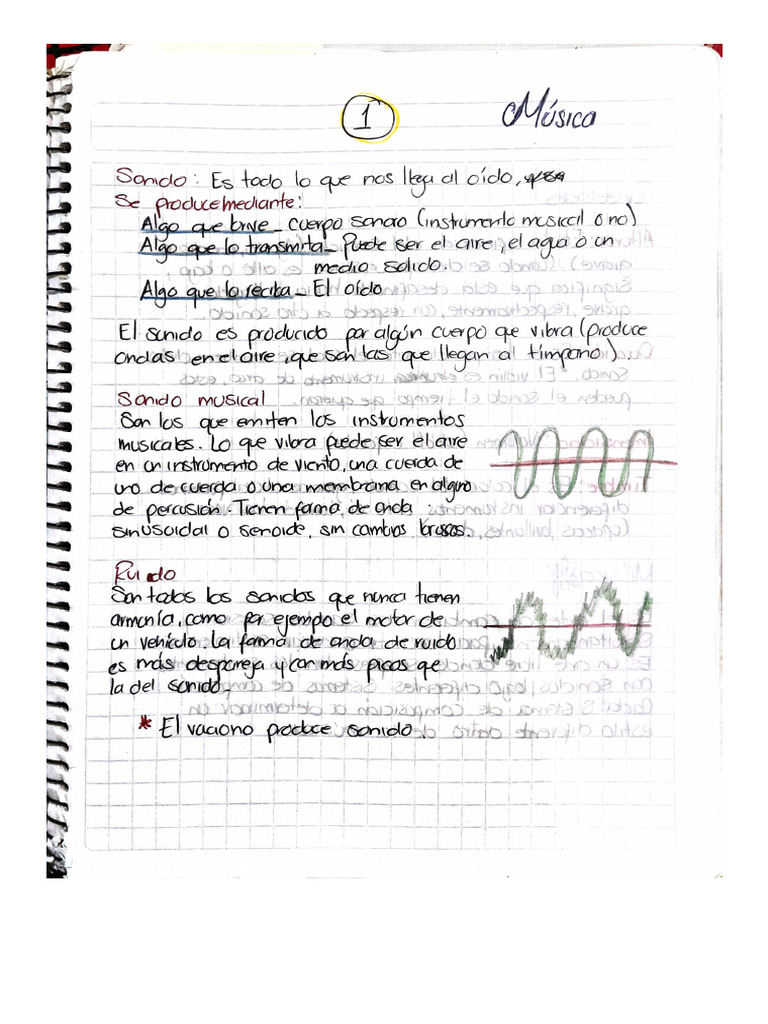 1
Música
Sonido: Es todo lo que nos llega al oído,
Se produce mediante:
Algo que brive_ cuerpo sonoro (instrumento musical o no)
Algo que lo transmita_ Puede ser el aire, el agua o un
medio solido.
Algo que lo reciba_ El oído
El sonido es producido por algún cuerpo que vibra (produce
ondas en el aire, que son las que llegan al tímpano.)
Sonido musical
Son los que emiten los instrumentos
musicales. Lo que vibra puede ser el aire
en un instrumento de viento, una cuerda de
uno de cuerda o una membrama en alguno
de percusión. Tienen forma de onda
sinusoidal o senoide, sin cambios bruscos.
Ruido
Son todos los sonidos que nunca tienen
armonía, como por ejemplo el motor de
un vehículo. La forma de onda de ruido
es más despareja y con más picos que
la del sonido.
* El vacio no produce sonido.